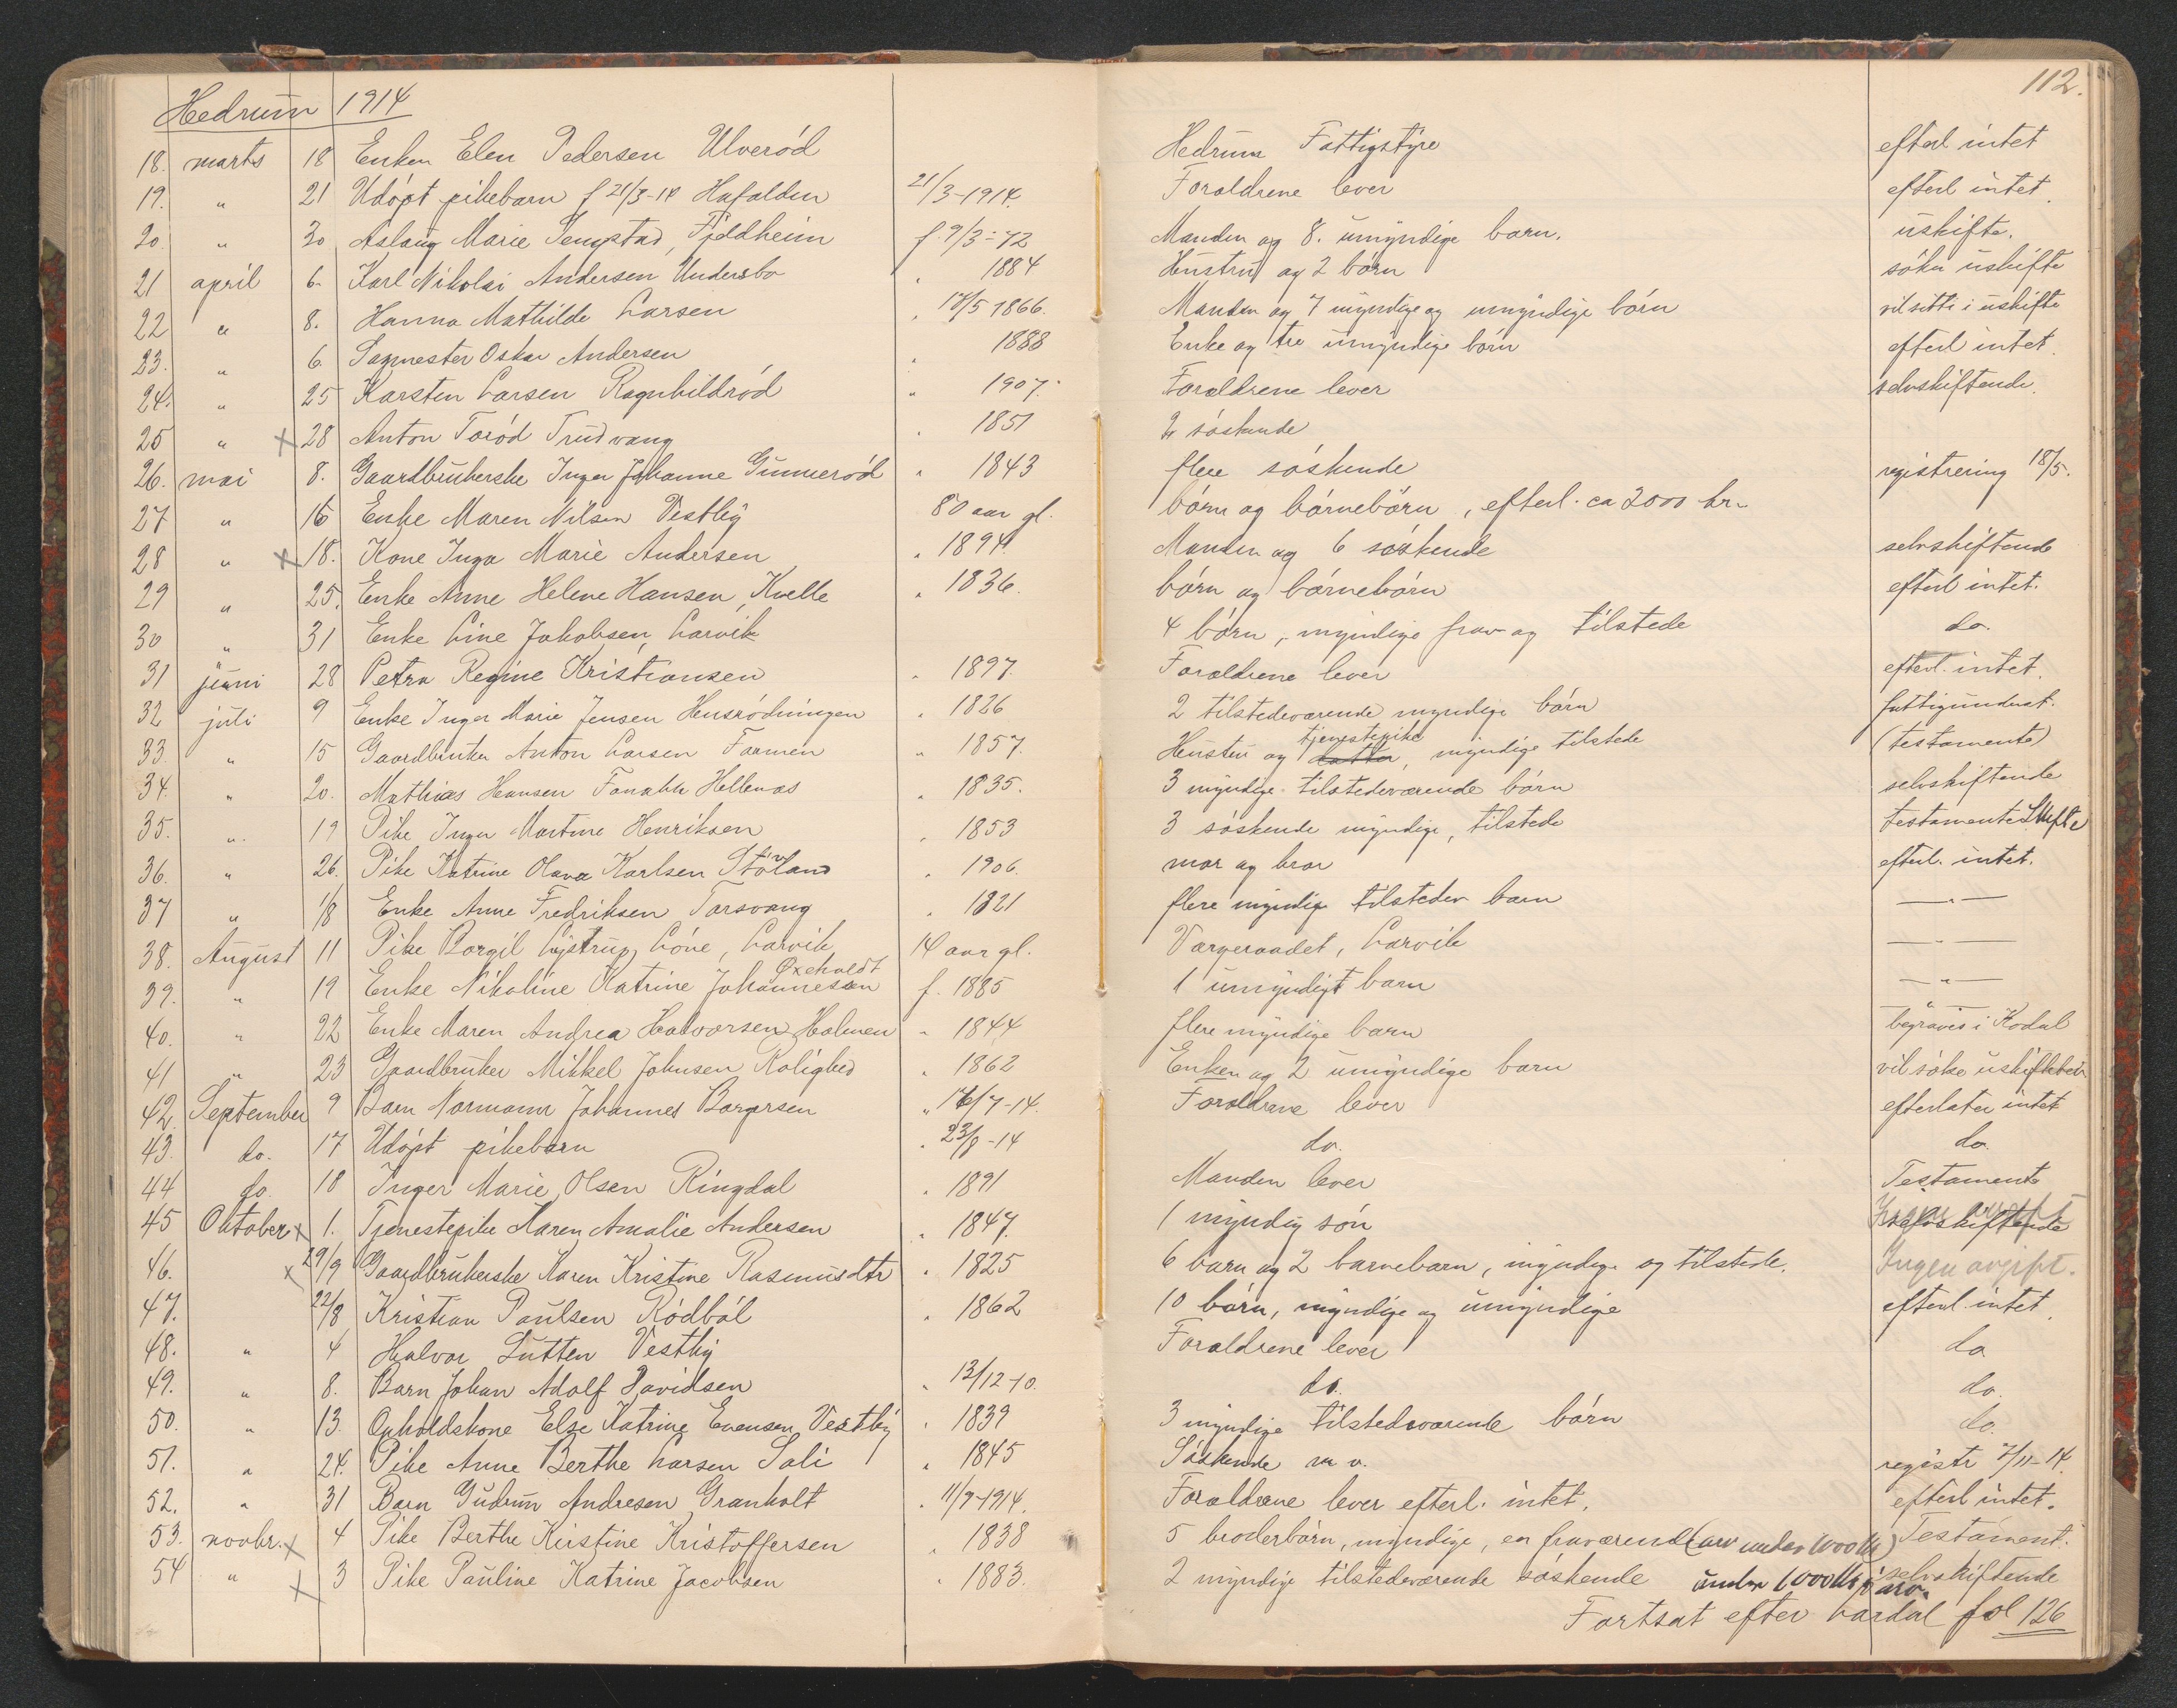 112.
Hedrum 1914
18. marts 18 Enken Elen Pedersen Ulveröd Hedrum Fattigstyre efterl intet
19. " 21 Udöpt pikebarn f 21/3-14 Hafalden 21/3-1914. Foraldrene lever efterl intet.
20. " 30 Aslaug Marie Jemstad, Fjeldheim f. 9/3-72 Manden og 8. umyndige barn. uskifte.
21 april 6. Karl Nikolai Andersen Undersbo " 1884 Hustru og 2 börn söker uskifte
22 " 8. Hanna Mathilde Larsen " 17/5 1866. Manden og 7 myndige og umyndige börn vil sitti i uskifte
23. " 6. Sagmester Oskar Andersen " 1888 Enke og tre umyndige börn efterl intet.
24. " 25 Karsten Larsen Ragnhildröd " 1907. Foraldrene lever selvskiftende.
25 " x 28 Anton Toröd Trudvang " 1851 2 söskende
26. mai 8. Gaardbrukerske Inger Johanne Gunneröd " 1843 flere söskende registrering 18/5.
27 " 16 Enke Maren Nilsen Vestby 80 aar gl. börn og börnebörn, efterl. ca 2000 kr.
28 " x 18. Kone Inga Marie Andersen " 1894. Manden og 6 söskende selvskiftende
29 " 25. Enke Anne Helene Hansen, Kvelle " 1836. börn og börnebörn efterl intet.
30 " 31 Enke Line Jakobsen, Larvik 4 börn, myndige frav og tilstede do.
31 juni 28 Petra Regine Kristiansen " 1897. Foraldrene lever efterl. intet.
32 juli 9 Enke Inger Marie Jensen Hensrödningen " 1826 2 tilstedevarende myndige börn fattigunderst.
33. " 15 Gaardbruker Anton Larsen Farmen " 1857. Hustru og tjenestepike, myndige tilstede (testamente)
34. " 20. Mathias Hansen Hellenas " 1835. 3 myndige tilstedevarende börn selvskiftende
35. " 19 Pike Inger Martine Henriksen " 1853 3 söskende myndige, tilstede testamente Skifte
36. " 26. Pike Katrine Olava Karlsen Stövland " 1906. mor og bror efterl. intet.
37 " 1/8 Enke Anne Fredriksen Torsvang " 1821 flere myndige tilstedev barn — " —
38. August 11 Pike Borgil Lystrup, Löve, Larvik 14 aar gl. Vargeraadet, Larvik — " —
39. " 19 Enke Nikoline Katrine Johannesen Oxeholdt f. 1885 1 umyndigt barn — " —
40. " 22 Enke Maren Andrea Halvorsen Holmen " 1844 flere myndige barn begraves i Kodal
41 " 23 Gaardbruker Mikkel Johnsen Rolighed " 1862 Enken og 2 umyndige barn vil söke uskiftebev
42. September 9 Barn Normann Johannes Borgersen " 16/7-14. Foraldrene lever efterlater intet
43. do. 17 Udöpt pikebarn " 23/8-14 do. do.
44 do. 18 Inger Marie Olsen Ringdal " 1891 Manden lever Testament
45 Oktober x 1. Tjenestepike Karen Amalie Andersen " 1847. 1 myndig sön Ingen avgift selvskiftende
46. x 29/9 Gaardbrukerske Karen Kristine Rasmusdtr " 1825 6 barn og 2 barnebarn, myndige og tilstede. Ingen avgift.
47. 22/8 Kristian Paulsen Rödböl " 1862 10 börn, myndige og umyndige efterl. intet.
48. " 4 Halvor Lutten Vestby Foraldrene lever do
49. " 8. Barn Johan Adolf Davidsen " 13/12-10. do. do.
50. " 13. Opholdskone Else Katrine Evensen Vestby " 1839 3 myndige tilstedvarende börn do.
51. " 24. Pike Anne Berthe Larsen Soli " 1845 Söskende m v. registr 7/11-14.
52. " 31 Barn Gudrun Andresen Granholt " 11/9-1914. Foraldrene lever efterl. intet. efterl intet.
53. novbr. x 4 Pike Berthe Kirstine Kristoffersen " 1838 5 broderbörn, myndige, en fraværend (arv under 1000 kr) Testament.
54 " x 3 Pike Pauline Katrine Jacobsen " 1883. 2 myndige tilstedevarende söskende under 1000 kr i arv. selvskiftende
Fortsat efter Lardal fol 126